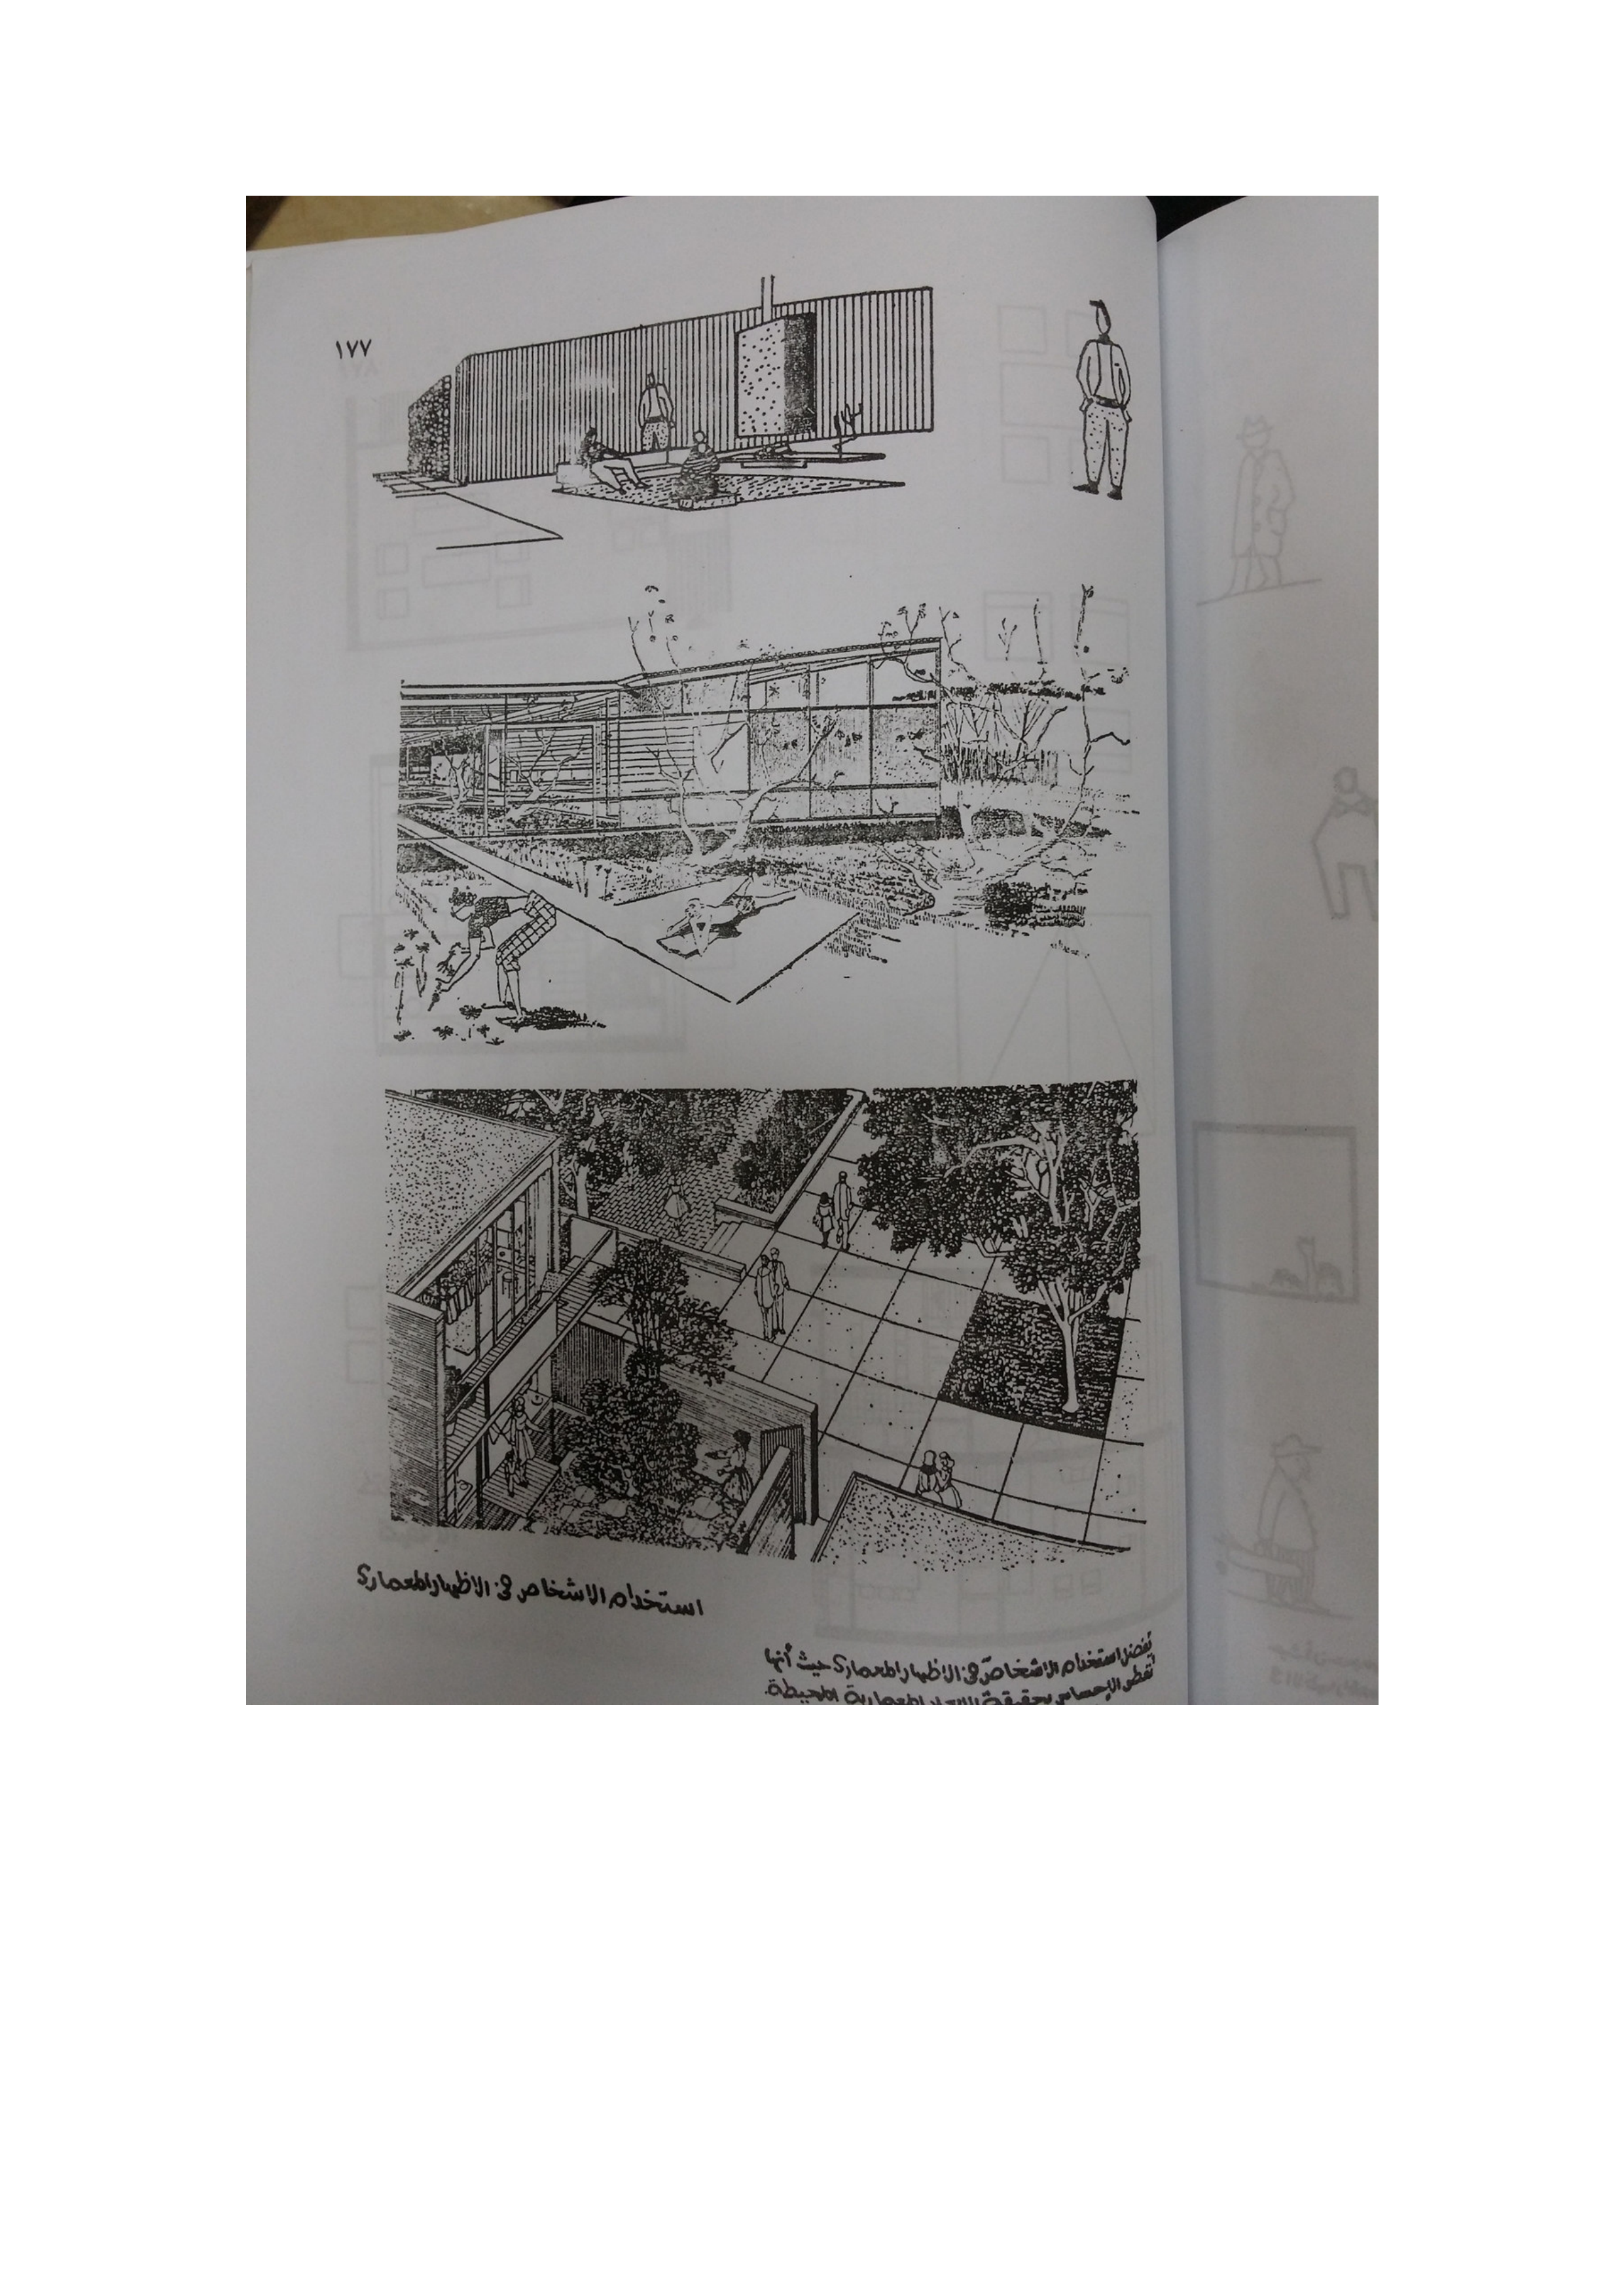 ١٧٧
استخدام الاشخاص فى الاظهار المعمارى
يفضل استخدام الاشخاص فى الاظهار المعمارى حيث أنها
تعطى الإحساس بحقيقة الابعاد المعمارية المحيطة.